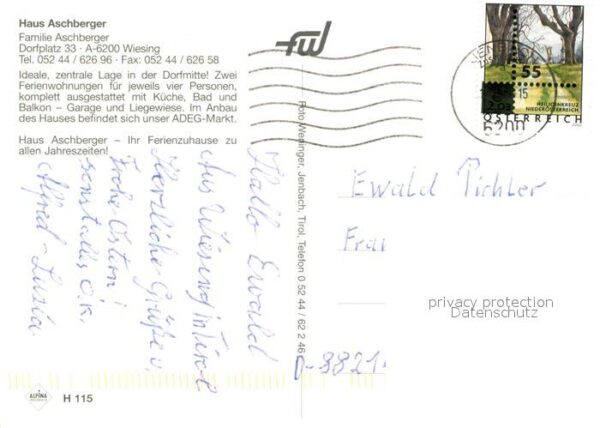 Haus Aschberger
Familie Aschberger
Dorfplatz 33 · A-6200 Wiesing
Tel. 052 44 / 626 96 · Fax: 052 44 / 626 58
Ideale, zentrale Lage in der Dorfmitte! Zwei
Ferienwohnungen für jeweils vier Personen,
komplett ausgestattet mit Küche, Bad und
Balkon – Garage und Liegewiese. Im Anbau
des Hauses befindet sich unser ADEG-Markt.
Haus Aschberger – Ihr Ferienzuhause zu
allen Jahreszeiten!
Hallo Ewald
Aus Wiesing in Tirol
Herzliche Grüße u.
Frohe Ostern!
sonst alles o.k.
Alfred - Luzia
ALPINA
H 115
fwj
Foto Weninger, Jenbach, Tirol, Telefon 0 52 44 / 62 2 46
55
15
HEILIGENKREUZ
NIEDERÖSTERREICH
ÖSTERREICH
6200
Ewald Pichler
Frau
privacy protection
Datenschutz
D-8821